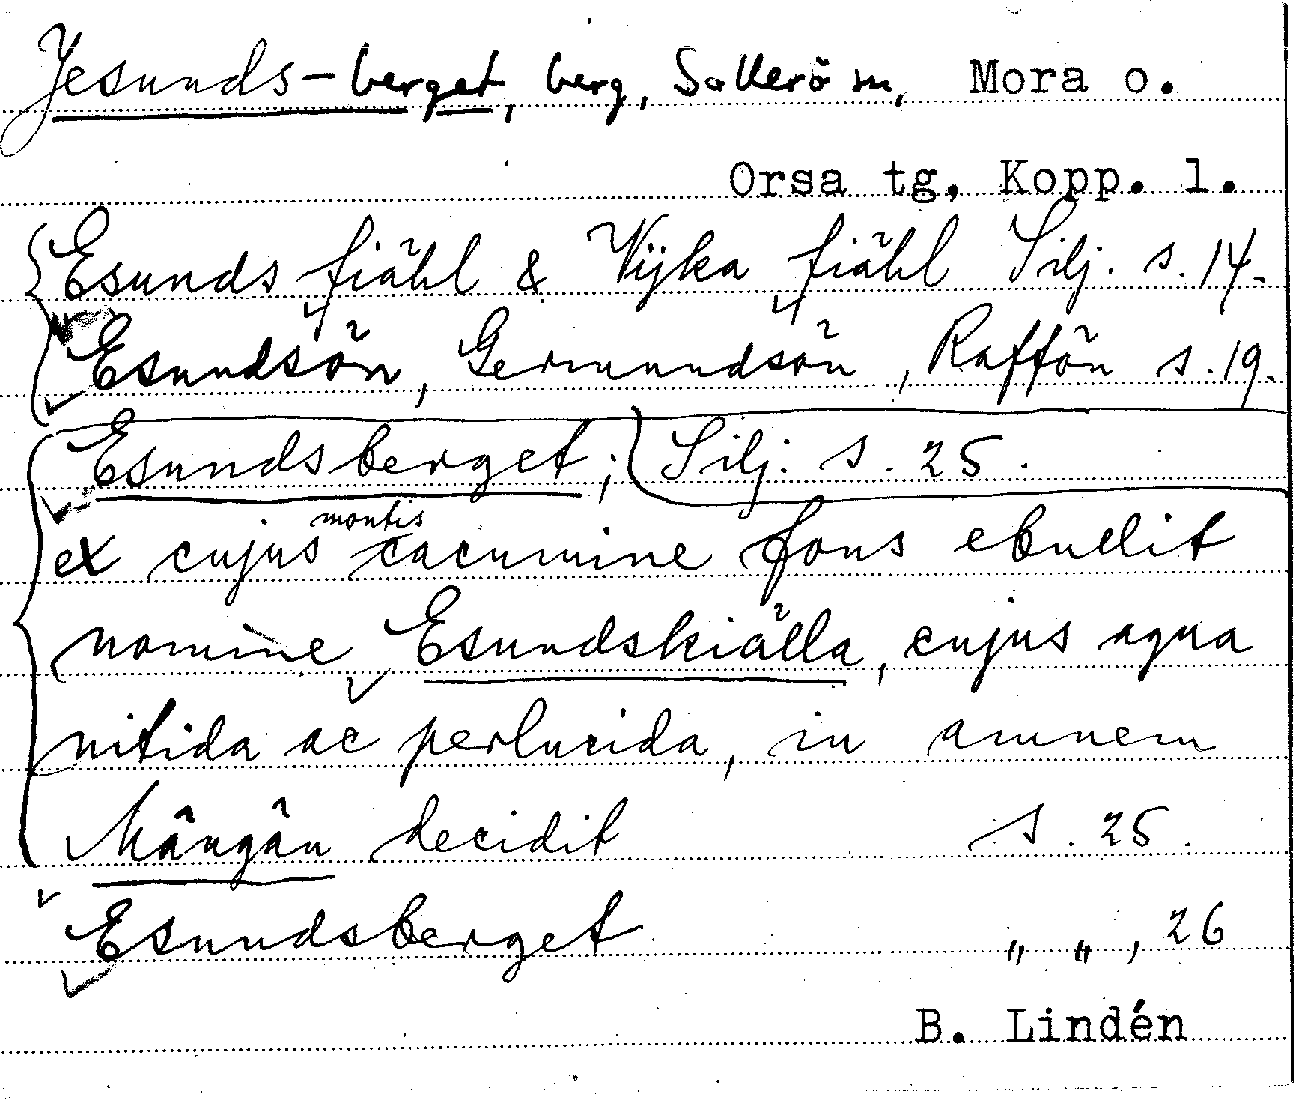 Jesunds-berget, berg, Sollerö sn, Mora o.
Orsa tg, Kopp. l.
Esunds fiähl & Wijka fiähl Silj. s. 14.
Esundsön, Germundsön, Raffön s. 19.
Esundsberget; Silj. s. 25.
ex cujus montis cacumine fons ebullit
nomine Esundskiälla, cujus aqua
nitida ac perlucida, in amnem
Mångån decidit s. 25.
Esundsberget „ „ , 26
B. Lindén